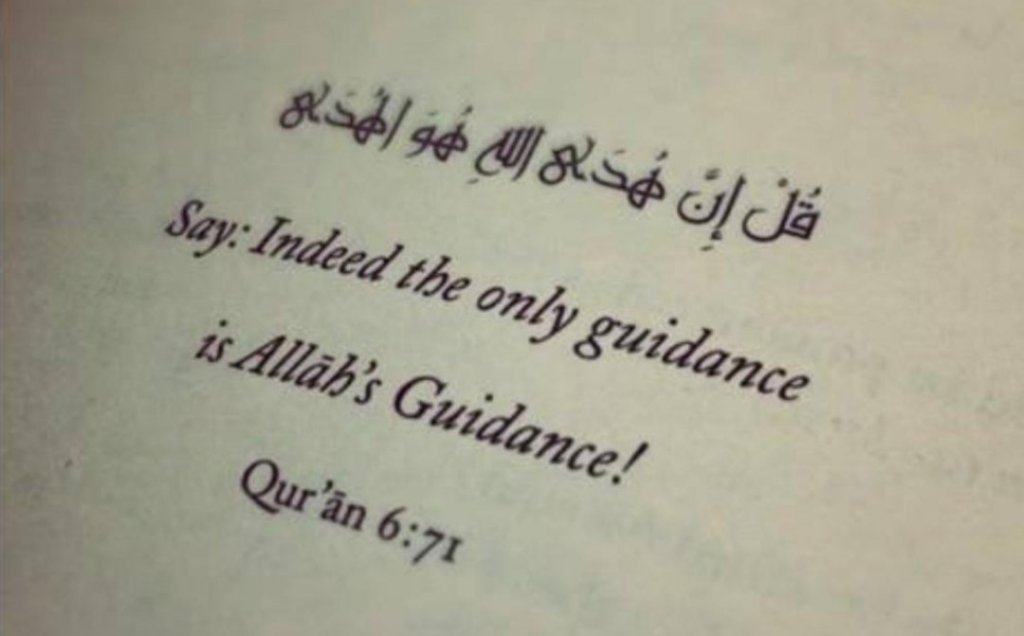 قُلْ إِنَّ هُدَى اللهِ هُوَ الْهُدَى
Say: Indeed the only guidance
is Allāh's Guidance!
Qur'ān 6:71